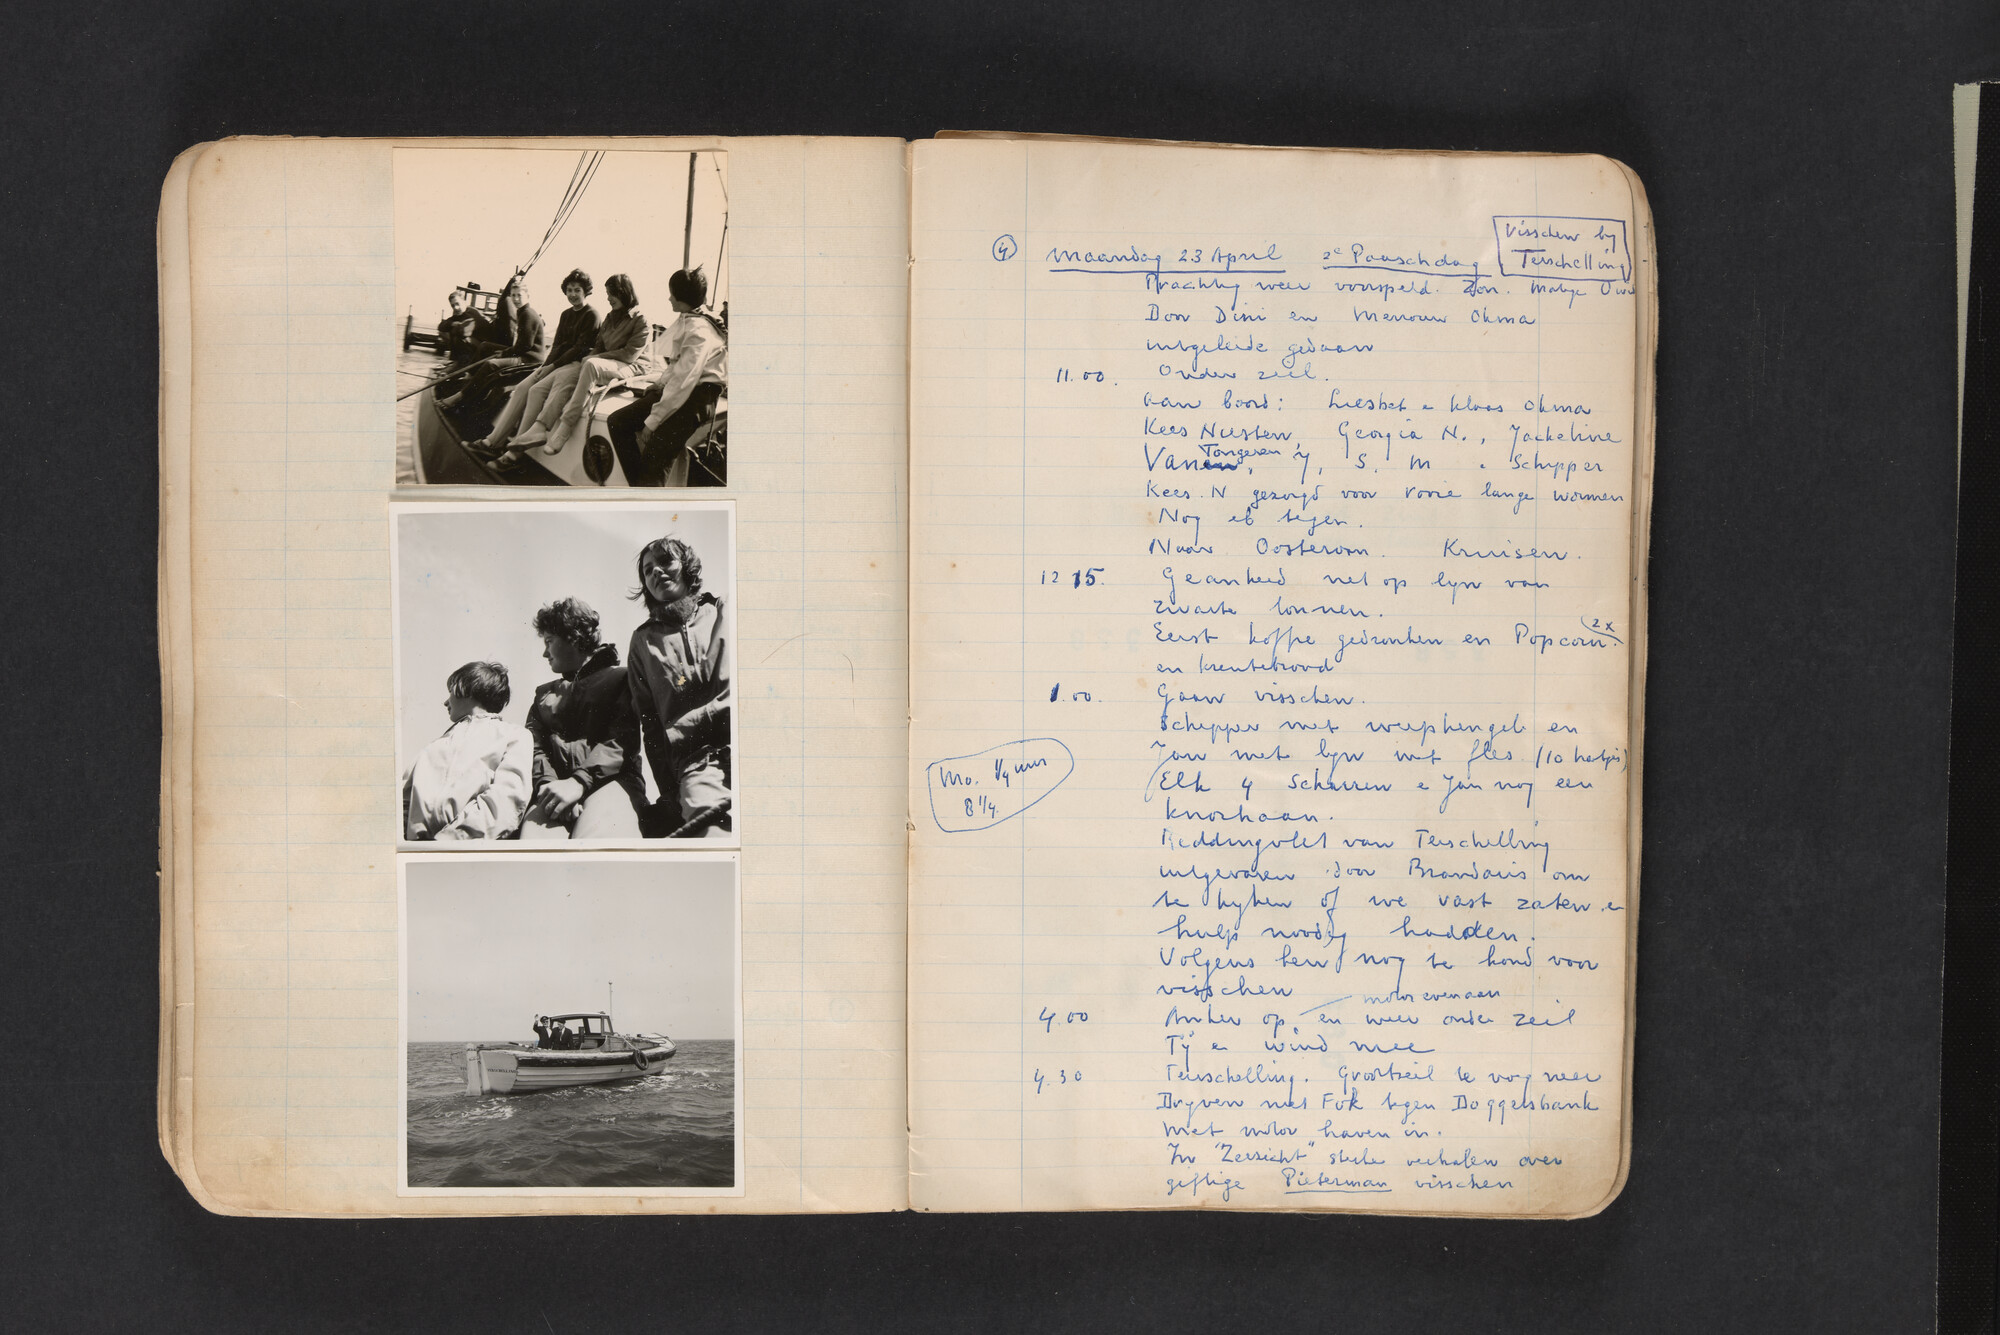 4
Visschen bij
Terschelling
Maandag 23 April 2e Paaschdag
Prachtig weer voorspeld. Zon. Matige
Door Dini en Mevrouw Okma
uitgeleide gedaan
11.00. Onder zeil.
aan boord: Liesbet e Klaas Okma
Kees Niesten, Georgia N., Jackeline
Van Tongeren, Y, S. M e Schipper
Kees N gezorgd voor rooie lange wormen
Nog eb tegen.
Naar Oosterom. Kruisen.
12 15. Geankerd net op lijn van
zwarte tonnen.
Eerst koffie gedronken en Popcorn. 2x
en krentebrood
1.00. Gaan visschen.
Schipper met werphengel en
Jan met lijn met fles (10 hakjes)
Elk 4 Scharren e Jan nog een
knorhaan.
Mo. 1/4 uur
8 1/4.
Reddingvlet van Terschelling
uitgevaren door Brandaris om
te kijken of we vast zaten e
hulp noodig hadden.
Volgens hen nog te koud voor
visschen
motor even aan
4.00 Anker op, en weer onder zeil
Tij e wind mee
4.30 Terschelling. Grootzeil te vroeg neer
Dryven met Fok tegen Doggersbank
Met motor haven in.
In "Zeezicht" sterke verhalen over
giftige Pieterman visschen